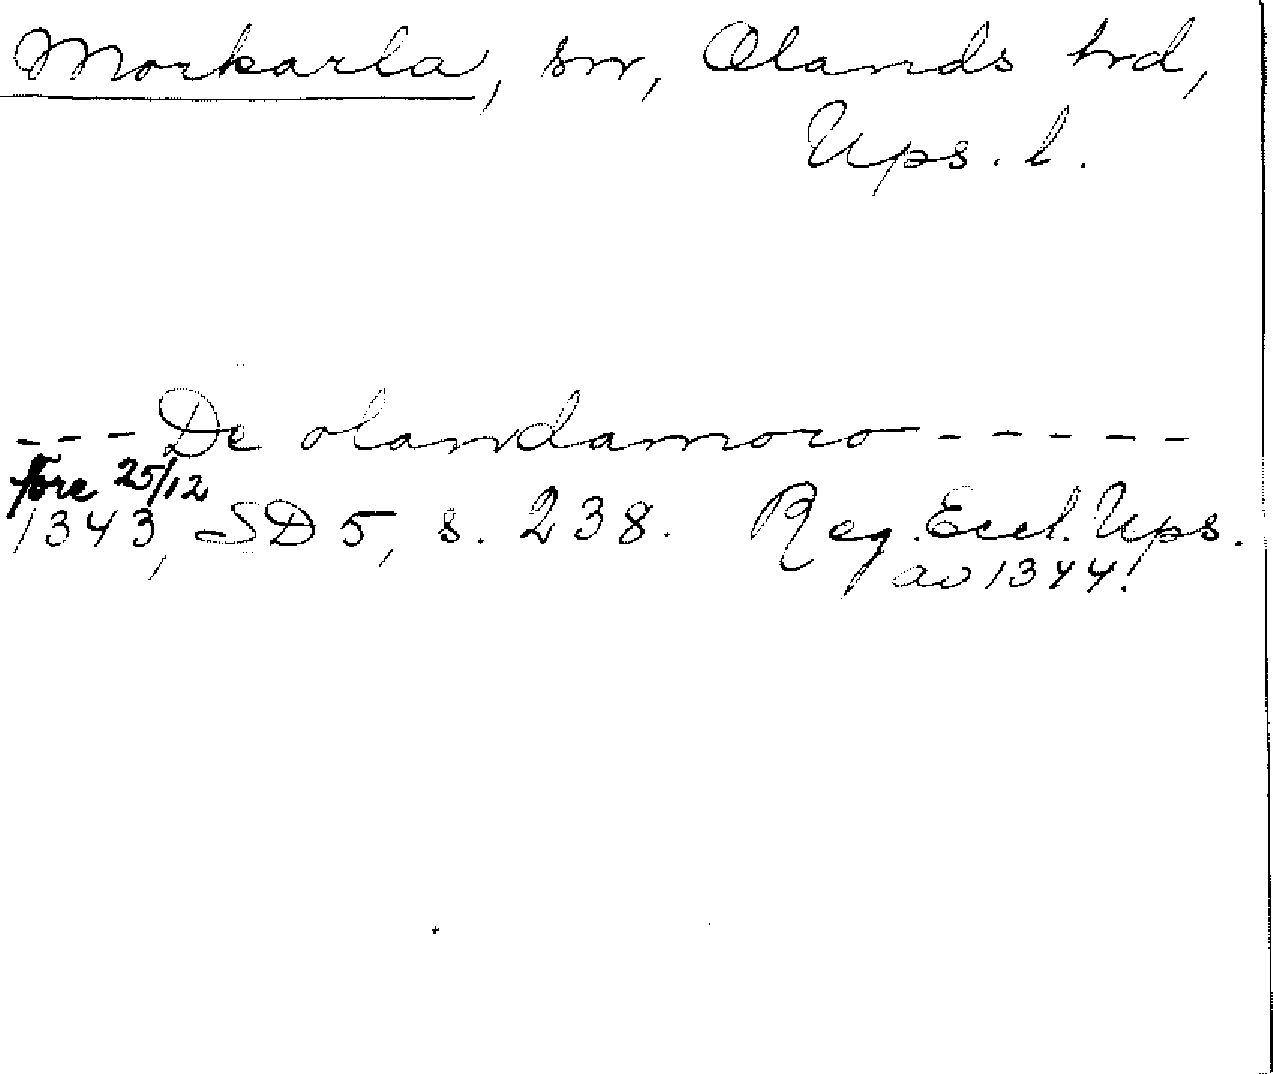 Morkarla, sn, Olands hd,
Ups. l.
- - - De olandamoro - - - - -
före 25/12
1343, SD 5, s. 238. Reg. Eccl. Ups.
av 1344!